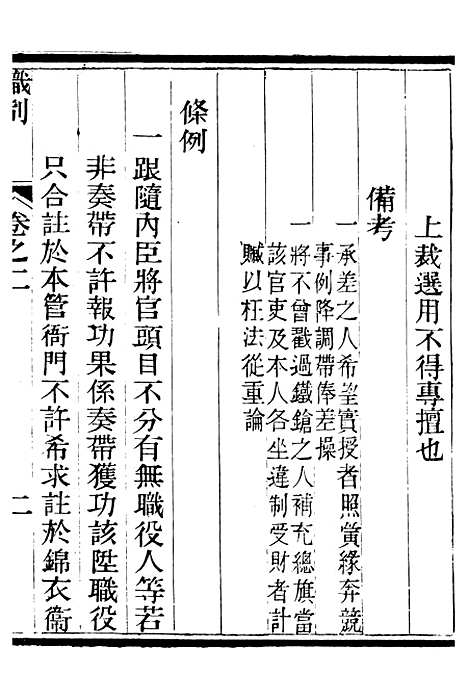 上裁選用不得專擅也
備考
一承差之人希望實授者照夤緣奔競
事例降調帶俸差操
一將不曾戳過鐵鎗之人補充總旗當
該官吏及本人各坐違制受財者計
贓以枉法從重論
條例
一跟隨內臣將官頭目不分有無職役人等若
非奏帶不許報功果係奏帶獲功該陞職役
只合註於本管衙門不許希求註於錦衣衞
職制
卷之二
二